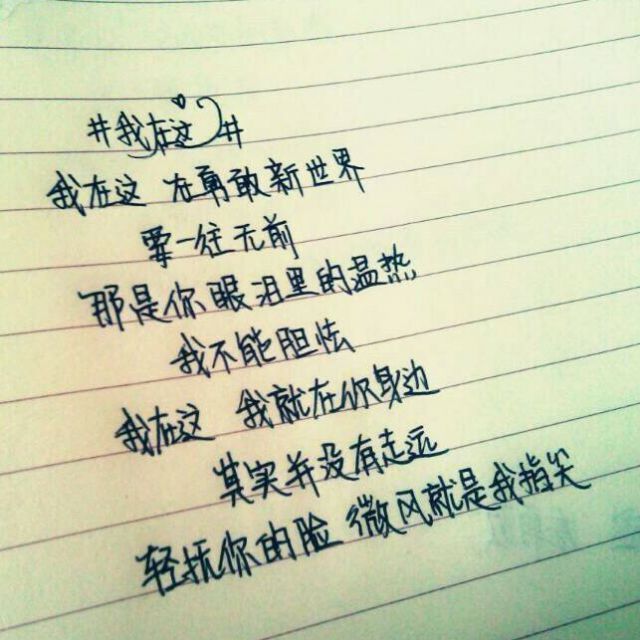 #我在这#
我在这 在勇敢新世界
要一往无前
那是你眼泪里的温热
我不能胆怯
我在这 我就在你身边
其实并没有走远
轻抚你的脸 微风就是我指尖